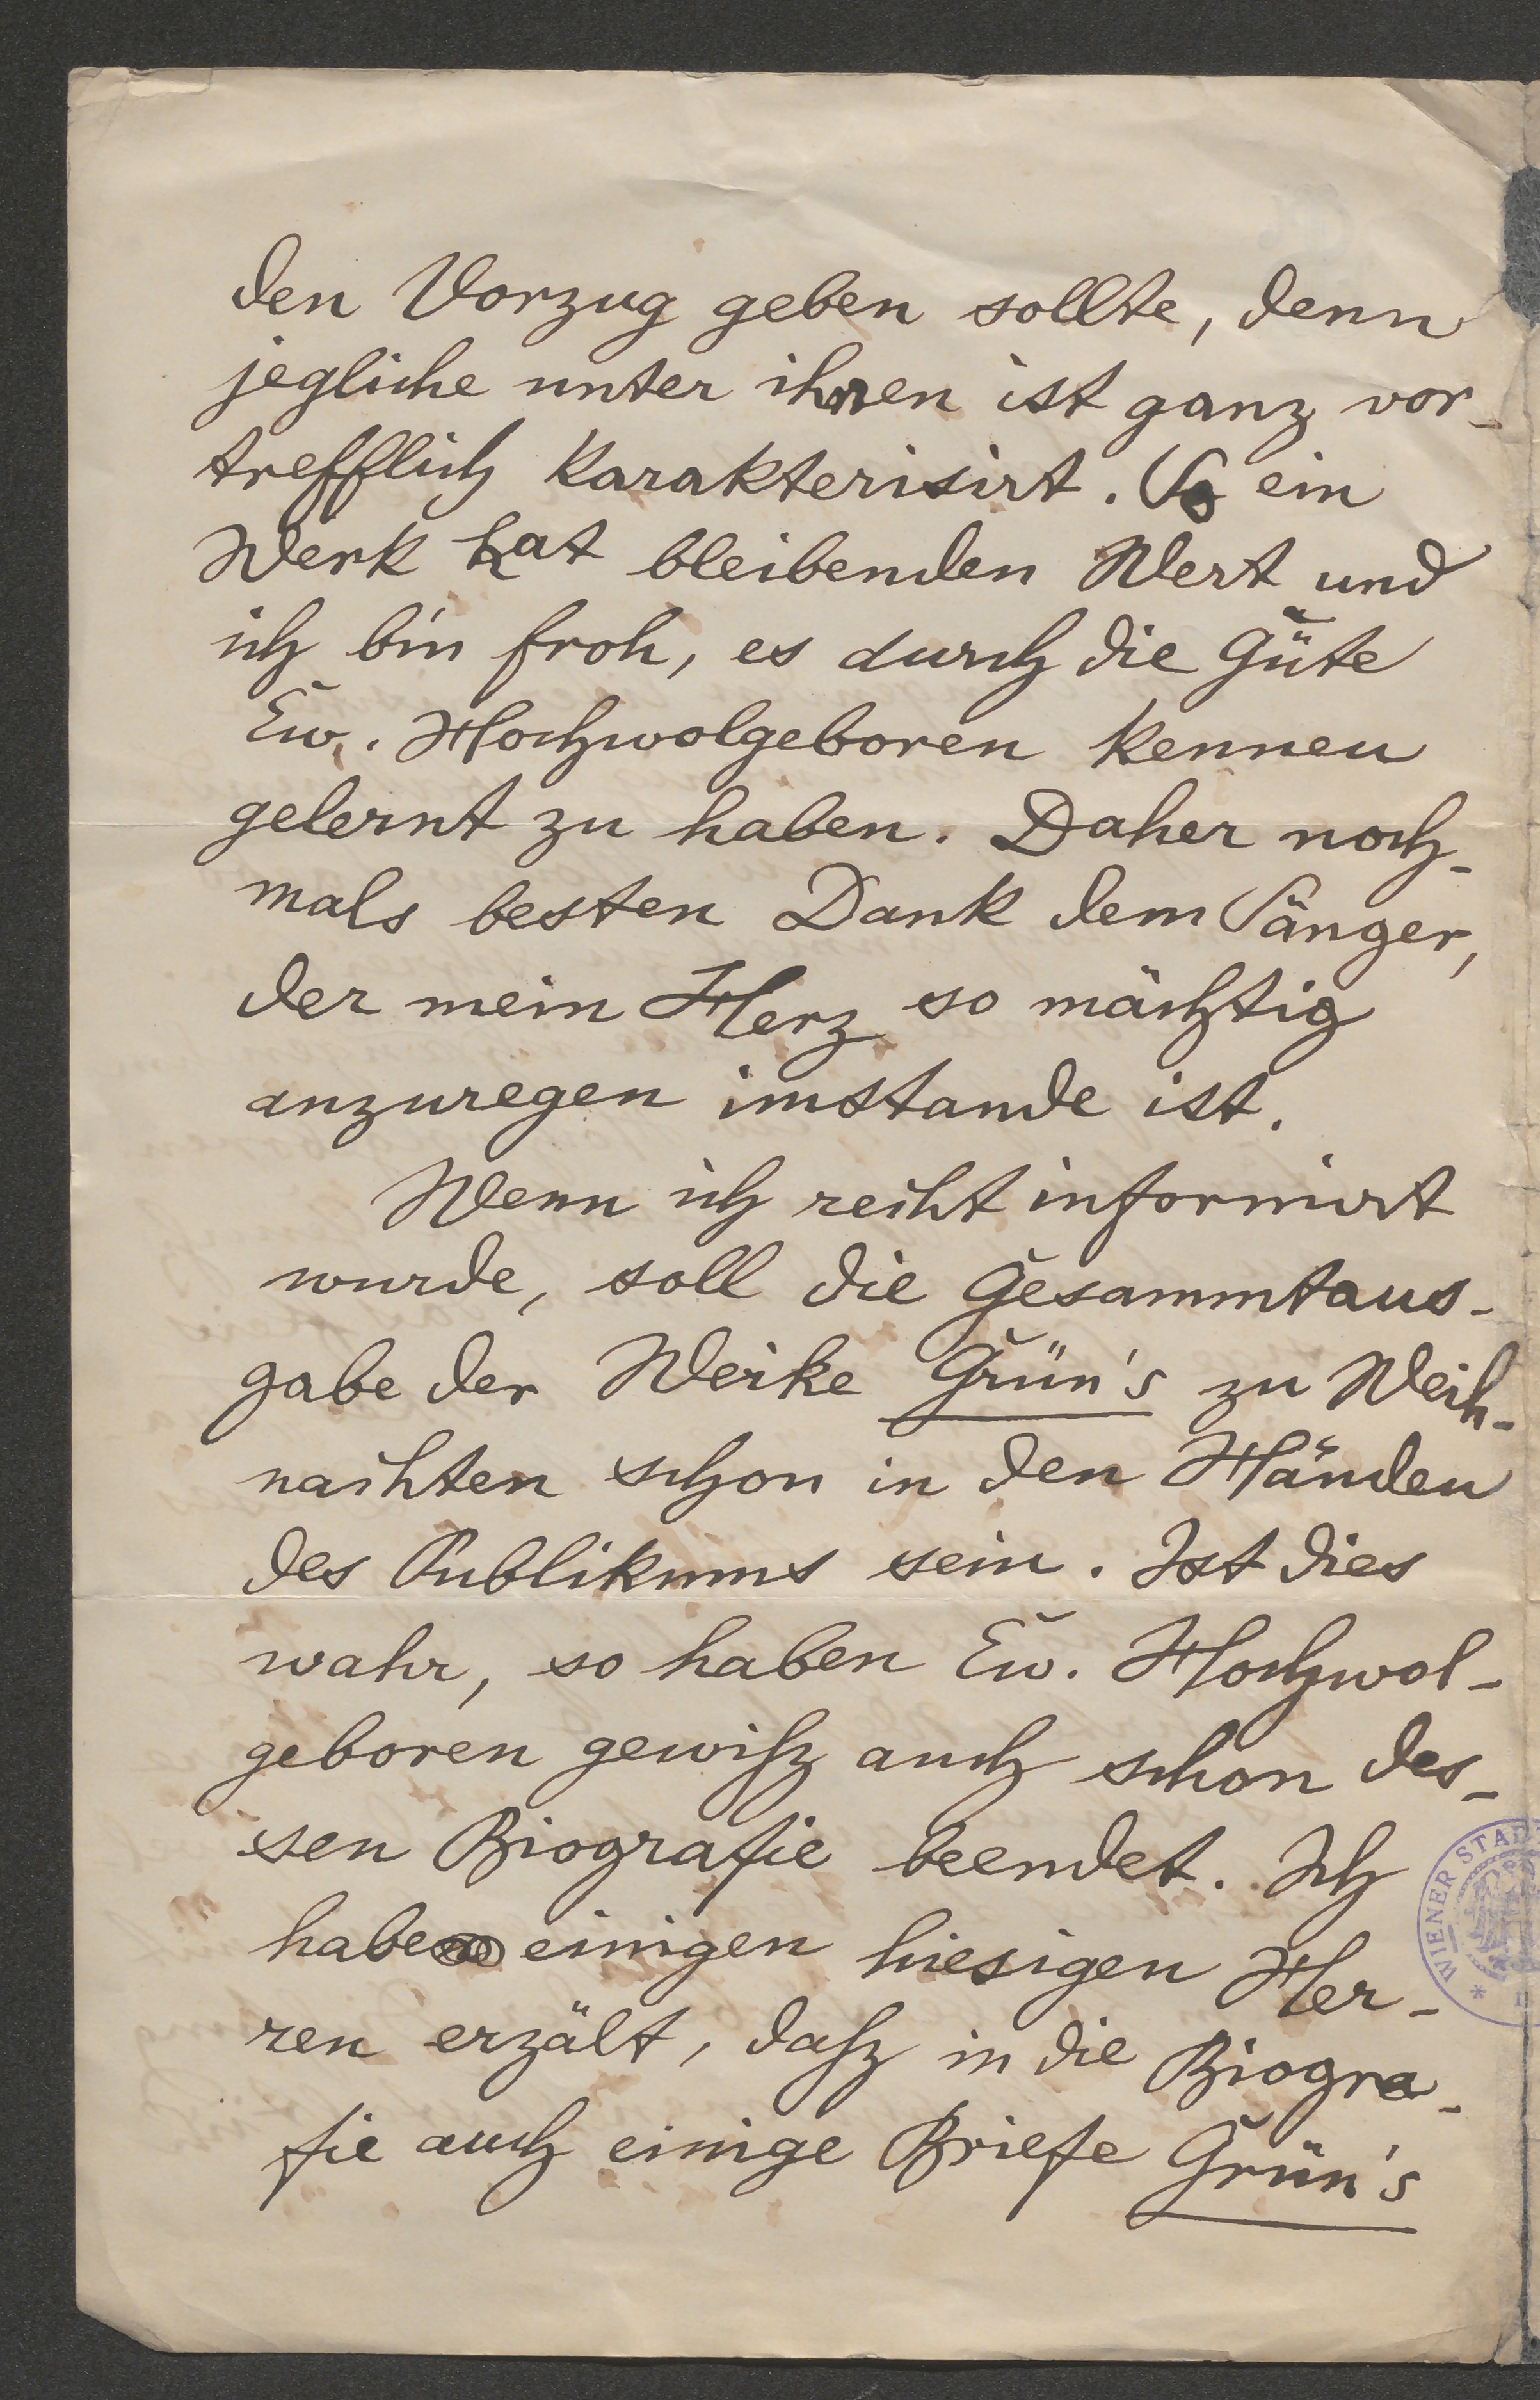 den Vorzug geben sollte, denn
jegliche unter ihnen ist ganz vor-
trefflich karakterisirt. So ein
Werk hat bleibenden Wert und
ich bin froh, es durch die Güte
Ew. Hochwolgeboren kennen
gelernt zu haben. Daher noch-
mals besten Dank dem Sänger,
der mein Herz so mächtig
anzuregen imstande ist.
Wenn ich recht informirt
wurde, soll die Gesammtaus-
gabe der Werke Grün's zu Weih-
nachten schon in den Händen
des Publikums sein. Ist dies
wahr, so haben Ew. Hochwol-
geboren gewiß auch schon des-
sen Biografie beendet. Ich
habe einigen hiesigen Her-
ren erzält, daß in die Biogra-
fie auch einige Briefe Grün's
WIENER STAD